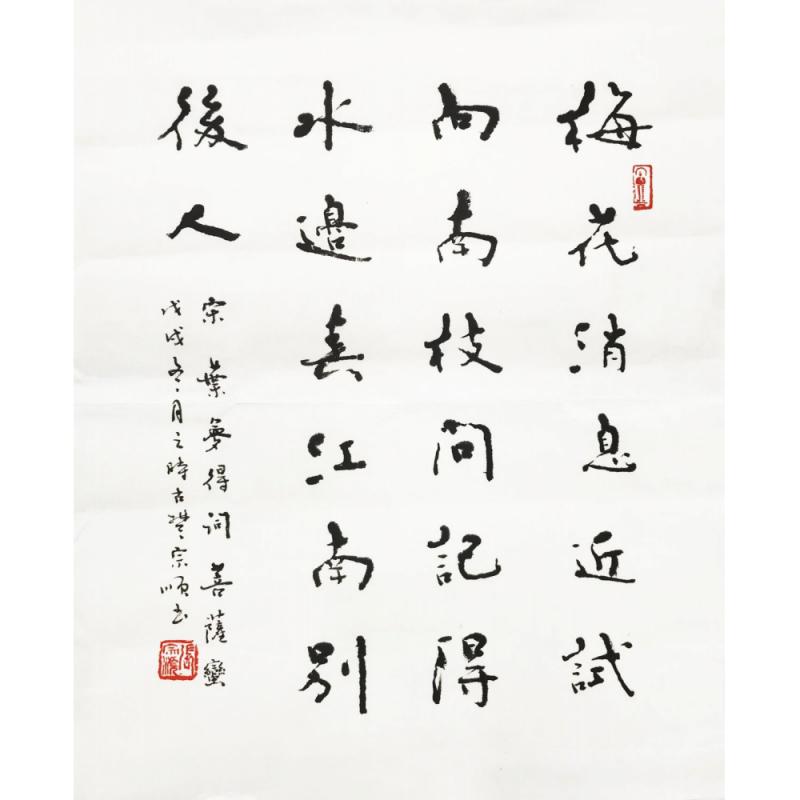 梅花消息近試
向南枝問記得
水邊春江南別
後人
宋葉夢得詞菩薩蠻
戊戌冬月之時古楚宗順書
張宗順